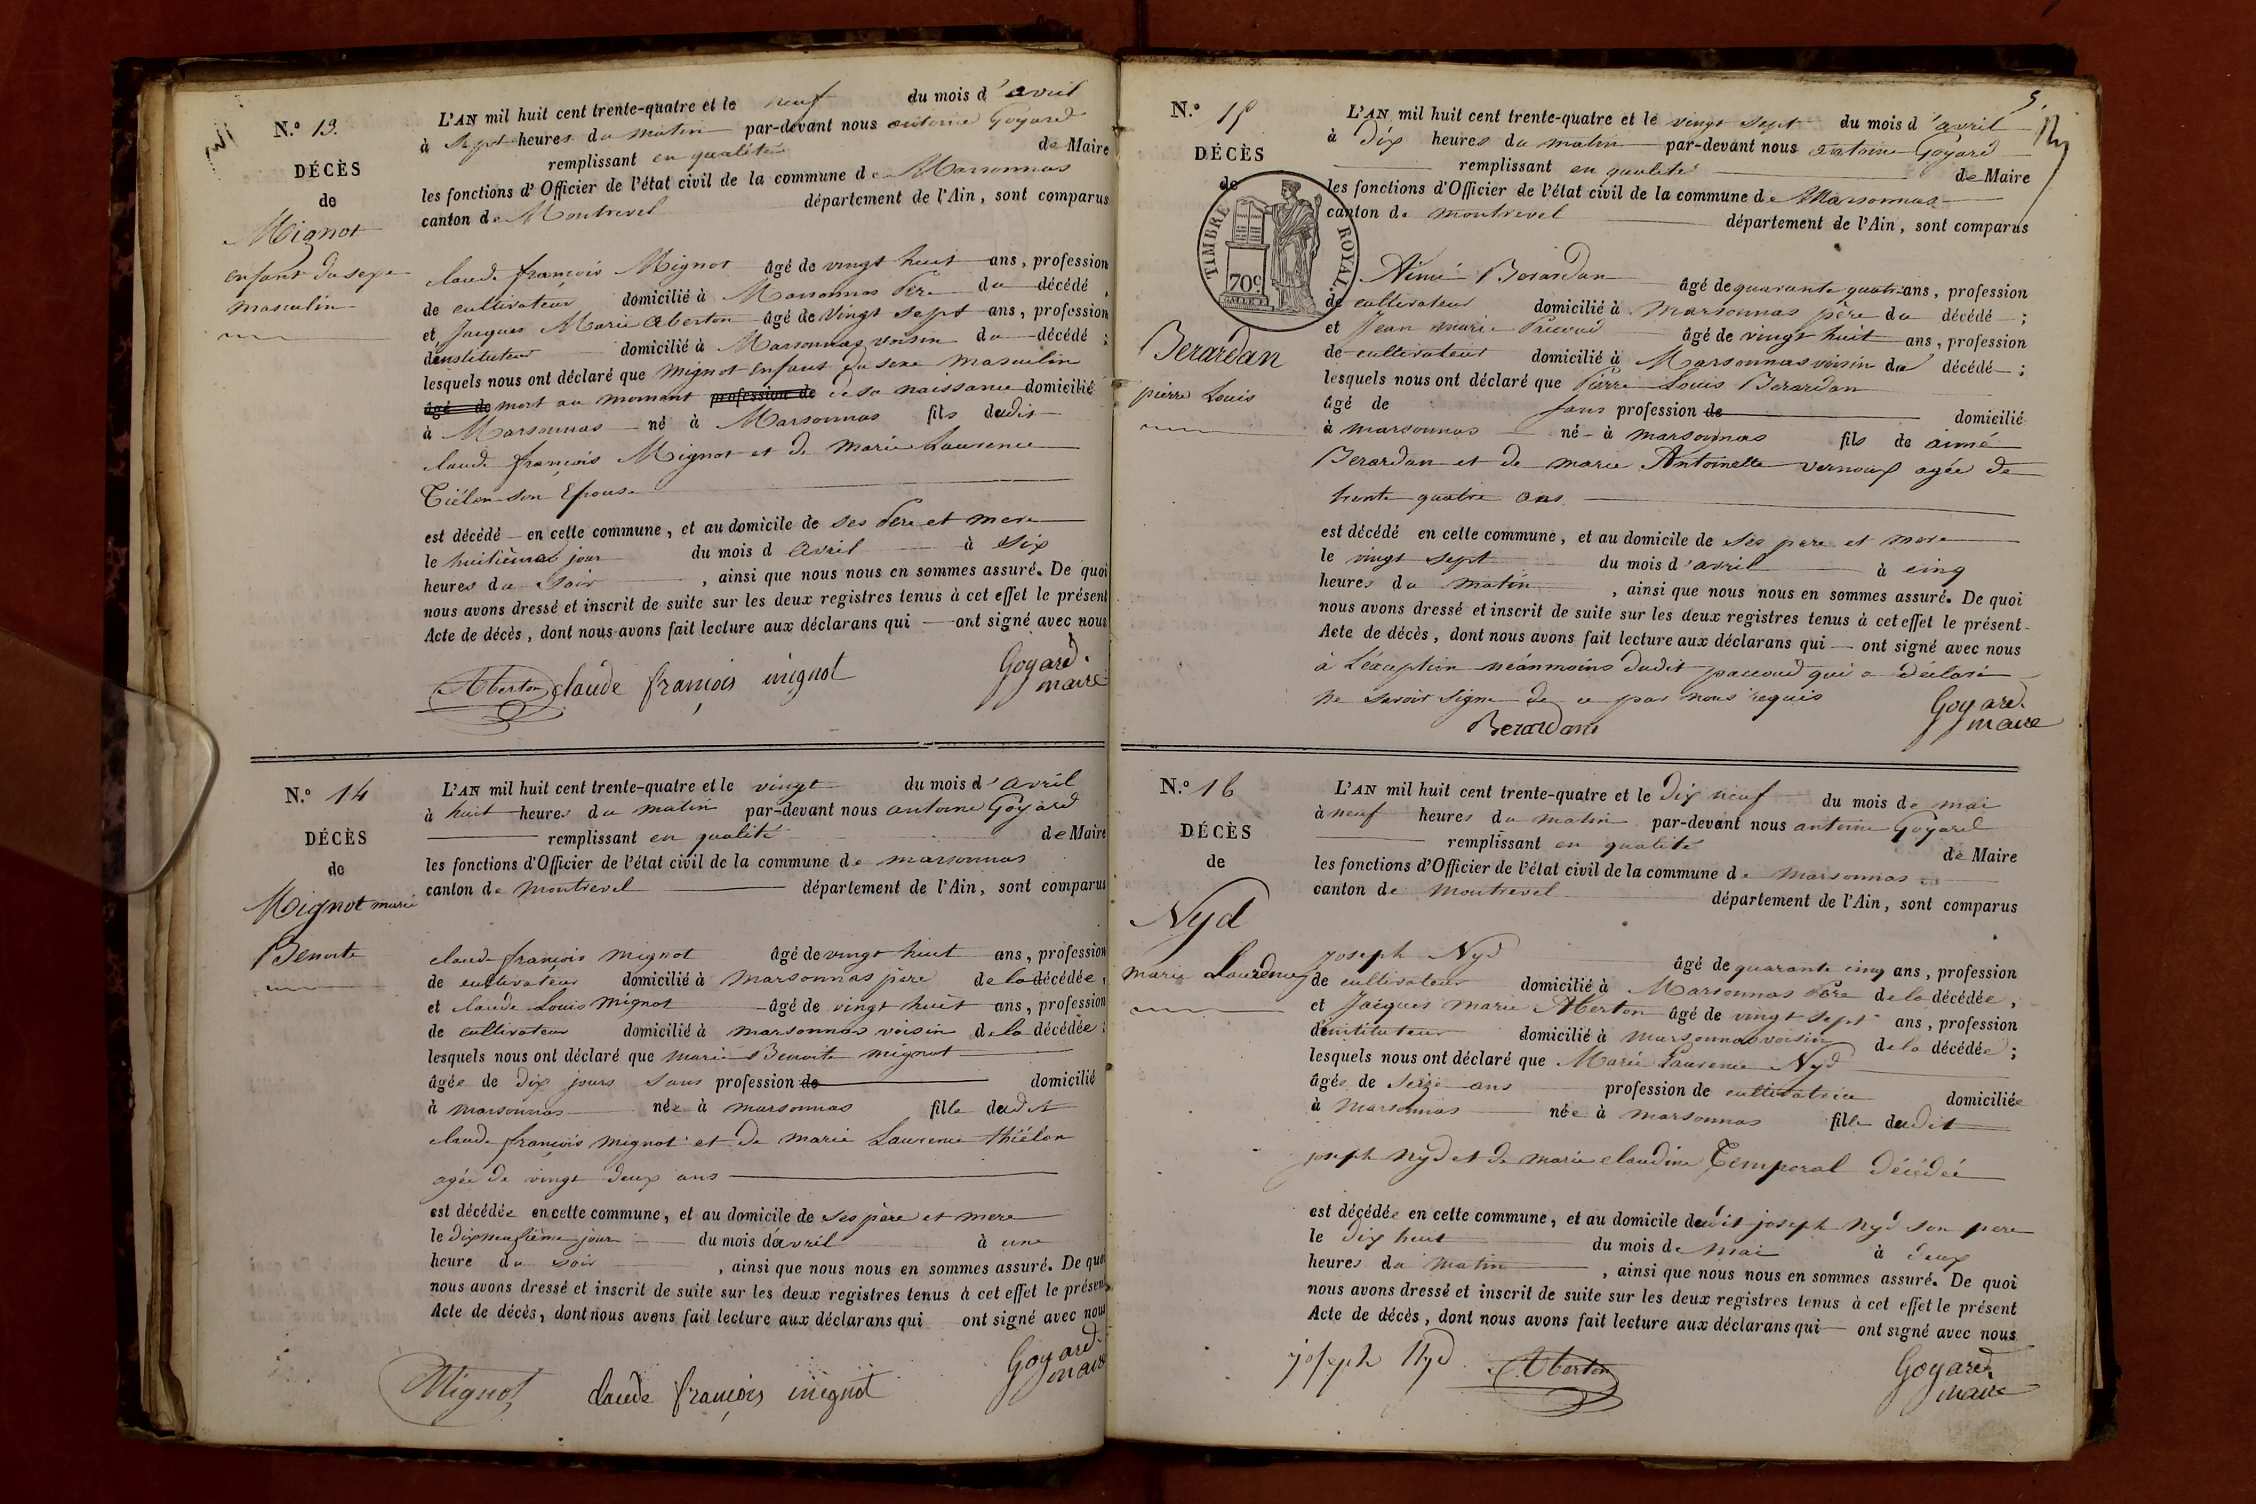 N.º 13.
DÉCÈS
de
Mignot
enfant du sexe
masculin
L'AN mil huit cent trente-quatre et le neuf du mois d'avril
à sept heures du matin par-devant nous antoine Goyard
remplissant en qualité de Maire
les fonctions d'Officier de l'état civil de la commune de Marsonnas
canton de Montrevel département de l'Ain, sont comparus
claude françois Mignot âgé de vingt huit ans, profession
de cultivateur domicilié à Marsonnas Père du décédé,
et Jacques Marie Aberton âgé de vingt sept ans, profession
d'instituteur domicilié à Marsonnas voisin du décédé ;
lesquels nous ont déclaré que mignot enfant du sexe masculin
âgé de mort au moment profession de de sa naissance domicilié
à Marsonnas né à Marsonnas fils dudit
claude françois Mignot et de Marie Laurence
Tiélon son Epouse
est décédé en cette commune, et au domicile de ses Père et mere
le huitième jour du mois d avril à six
heures du soir, ainsi que nous nous en sommes assuré. De quoi
nous avons dressé et inscrit de suite sur les deux registres tenus à cet effet le présent
Acte de décès, dont nous avons fait lecture aux déclarans qui ont signé avec nous
Aberton claude françois mignot Goyard.
maire
N.º 14
DÉCÈS
de
Mignot marie
Benoite
L'AN mil huit cent trente-quatre et le vingt du mois d'avril
à huit heures du matin par-devant nous antoine Goyard
remplissant en qualité de Maire
les fonctions d'Officier de l'état civil de la commune de marsonnas
canton de montrevel département de l'Ain, sont comparus
claude françois mignot âgé de vingt huit ans, profession
de cultivateur domicilié à marsonnas père de la décédée,
et claude Louis mignot âgé de vingt huit ans, profession
de cultivateur domicilié à marsonnas voisin de la décédée ;
lesquels nous ont déclaré que marie Benoite mignot
âgée de dix jours sans profession de domicilié
à marsonnas née à marsonnas fille dudit
claude françois mignot et de marie Laurence thiélon
agée de vingt deux ans
est décédée en cette commune, et au domicile de ses père et mere
le dixneufième jour du mois d'avril à une
heure du soir, ainsi que nous nous en sommes assuré. De quoi
nous avons dressé et inscrit de suite sur les deux registres tenus à cet effet le présent
Acte de décès, dont nous avons fait lecture aux déclarans qui ont signé avec nous
Mignot claude françois mignot Goyard.
maire
5.
N.º 15
DÉCÈS
de
TIMBRE ROYAL.
70c
Berardan
pierre Louis
L'AN mil huit cent trente-quatre et le vingt sept du mois d'avril
à dix heures du matin par-devant nous antoine Goyard
remplissant en qualité de Maire
les fonctions d'Officier de l'état civil de la commune de Marsonnas
canton de montrevel département de l'Ain, sont comparus
Aimé Berardan âgé de quarante quatre ans, profession
de cultivateur domicilié à marsonnas père du décédé ;
et Jean marie Paccoud âgé de vingt huit ans, profession
de cultivateur domicilié à Marsonnas voisin du décédé ;
lesquels nous ont déclaré que Pierre Louis Berardan
âgé de sans profession de domicilié
à marsonnas né à marsonnas fils de aimé
Berardan et de marie Antoinette vernoux agée de
trente quatre ans
est décédé en cette commune, et au domicile de ses pere et mere
le vingt sept du mois d'avril à cinq
heures du matin, ainsi que nous nous en sommes assuré. De quoi
nous avons dressé et inscrit de suite sur les deux registres tenus à cet effet le présent
Acte de décès, dont nous avons fait lecture aux déclarans qui ont signé avec nous
à L'éxception néanmoins dudit paccoud qui a déclaré
ne savoir signer de ce par nous requis
Berardan Goyard.
maire
N.º 16
DÉCÈS
de
Nyd
marie Laurence
L'AN mil huit cent trente-quatre et le dix neuf du mois de mai
à neuf heures du matin par-devant nous antoine Goyard
remplissant en qualité de Maire
les fonctions d'Officier de l'état civil de la commune de marsonnas
canton de montrevel département de l'Ain, sont comparus
joseph Nyd âgé de quarante cinq ans, profession
de cultivateur domicilié à Marsonnas Père de la décédée,
et Jacques marie Aberton âgé de vingt sept ans, profession
d'instituteur domicilié à marsonnas voisin de la décédée ;
lesquels nous ont déclaré que Marie Laurence Nyd
âgée de seize ans profession de cultivatrice domiciliée
à Marsonnas née à marsonnas fille dudit
joseph Nyd et de marie claudine Temporal décédée
est décédée en cette commune, et au domicile dudit joseph Nyd son pere
le dix huit du mois de mai à deux
heures du matin, ainsi que nous nous en sommes assuré. De quoi
nous avons dressé et inscrit de suite sur les deux registres tenus à cet effet le présent
Acte de décès, dont nous avons fait lecture aux déclarans qui ont signé avec nous
joseph Nyd Aberton Goyard
maire